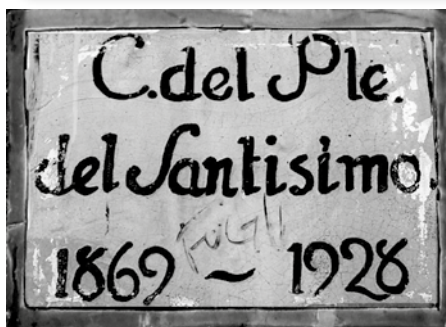 C. del Ple.
del Santisimo.
1869 ~ 1928